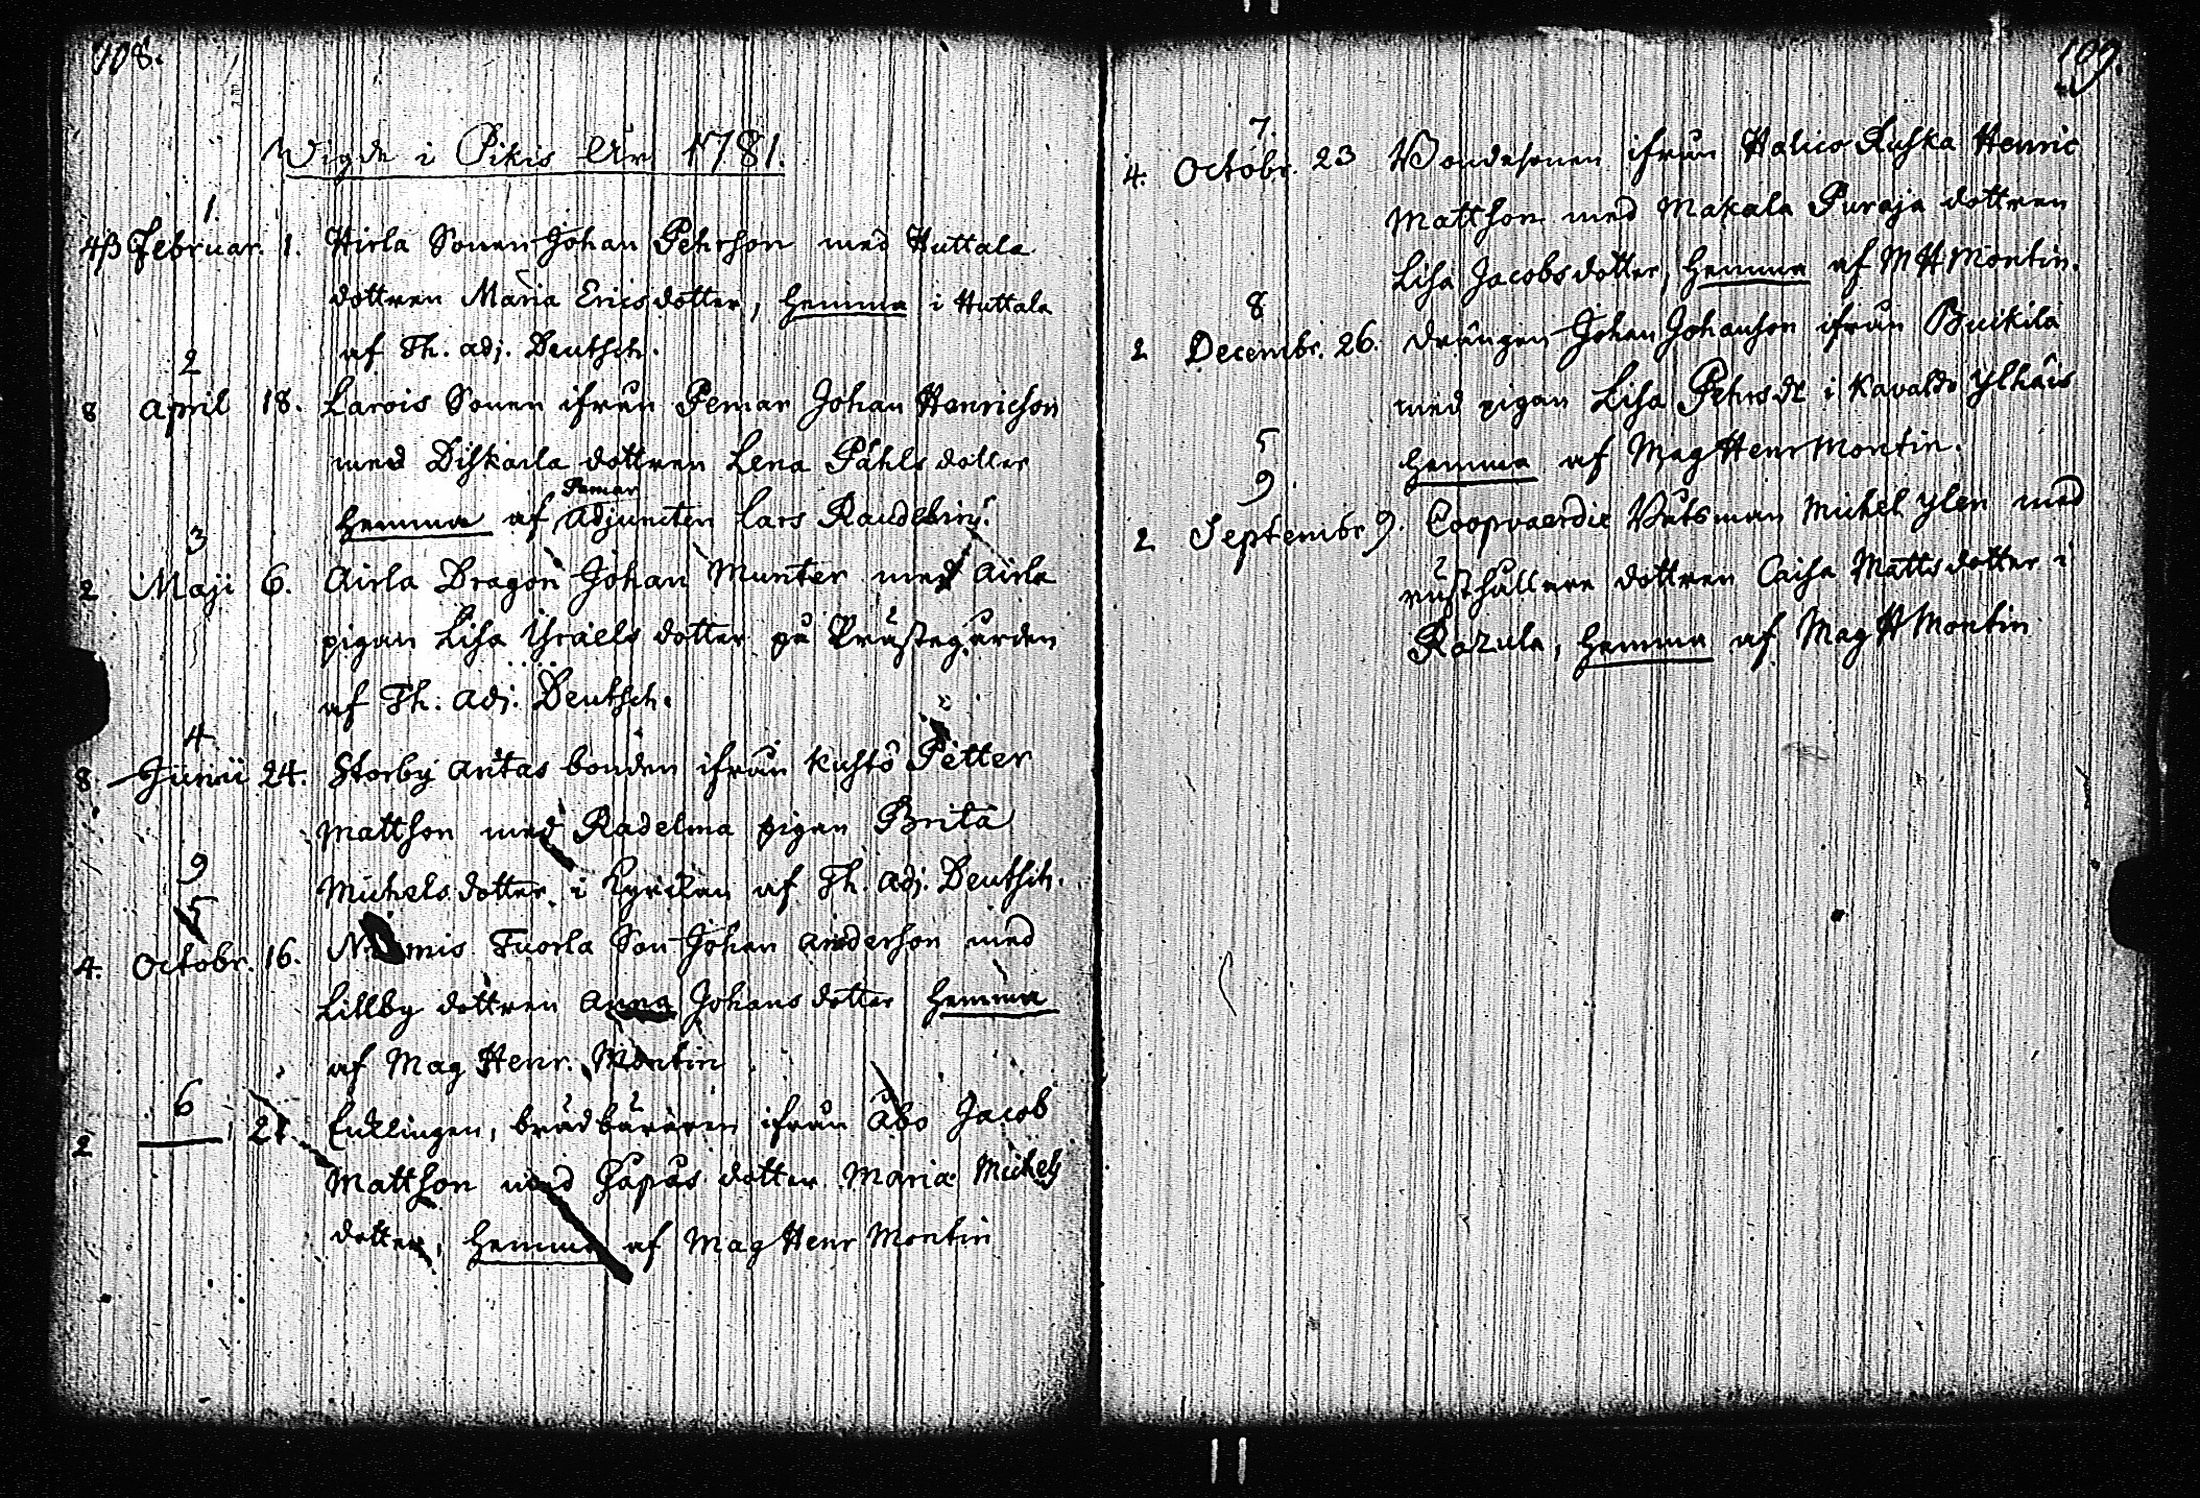 108.
Wigde i Pikis År 1781.
1.
4ß Februar. 1. Hirla Sonen Johan Pehrson med Huttala
dottren Maria Ericsdotter, hemma i Huttala
af Th. adj. Deutsch.
2
8 April 18. Larois Sonen ifrån Pemar Johan Henricson
med Diskarla dottren Lena Påhls dotter
Pemar
hemma af Adjuncten Lars
3
2 Maji 6. Airla Dragon Johan Munter med Airla
pigan Lisa Israels dotter på Prästegården
af Th. adj. Deutsch.
4
8. Junii 24. Storby Antas bonden ifrån Kustö Petter
Mattson med Radelma pigan Brita
Michels dotter i af Th. Adj. Deutsch.
9
5
4. Octobr. 16. Tuorla Son Johan Anderson med
Lillby dottren Anna Johans dotter hemma
af Mag Henr. Montin
6
2 21. Enklingen, brådbäraren ifrån Åbo Jacob
Mattson med dotter Maria Michels
dotter, hemma af Mag Henr Montin
109.
7.
4. Octobr. 23 Bondesonen ifrån Halico Ruska Henric
Mattson med Makala Puraja dottren
Lisa Jacobsdotter, hemma af M H Montin.
8
2 Decembr. 26. drängen Johan Johanson ifrån Buikila
med pigan Lisa Pehrs dr i Kavaldo Ylhäis
hemma af Mag Henr Montin.
5
9
2 Septembr 9. Coopvaerdie Båtsman Michel Ylen med
rusthållare dottren Caisa Mattsdotter i
Razula, hemma af Mag H Montin